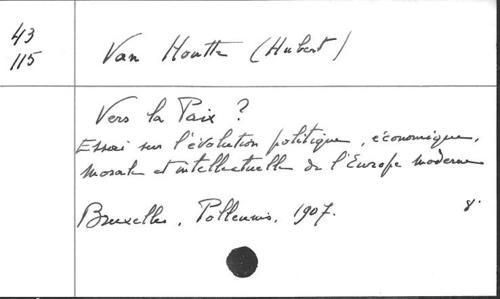 43
115
Van Houtte (Hubert)
Vers la Paix ?
Essai sur l'évolution politique, économique,
morale et intellectuelle de l'Europe moderne
Bruxelles, Polleunis, 1907. 8°